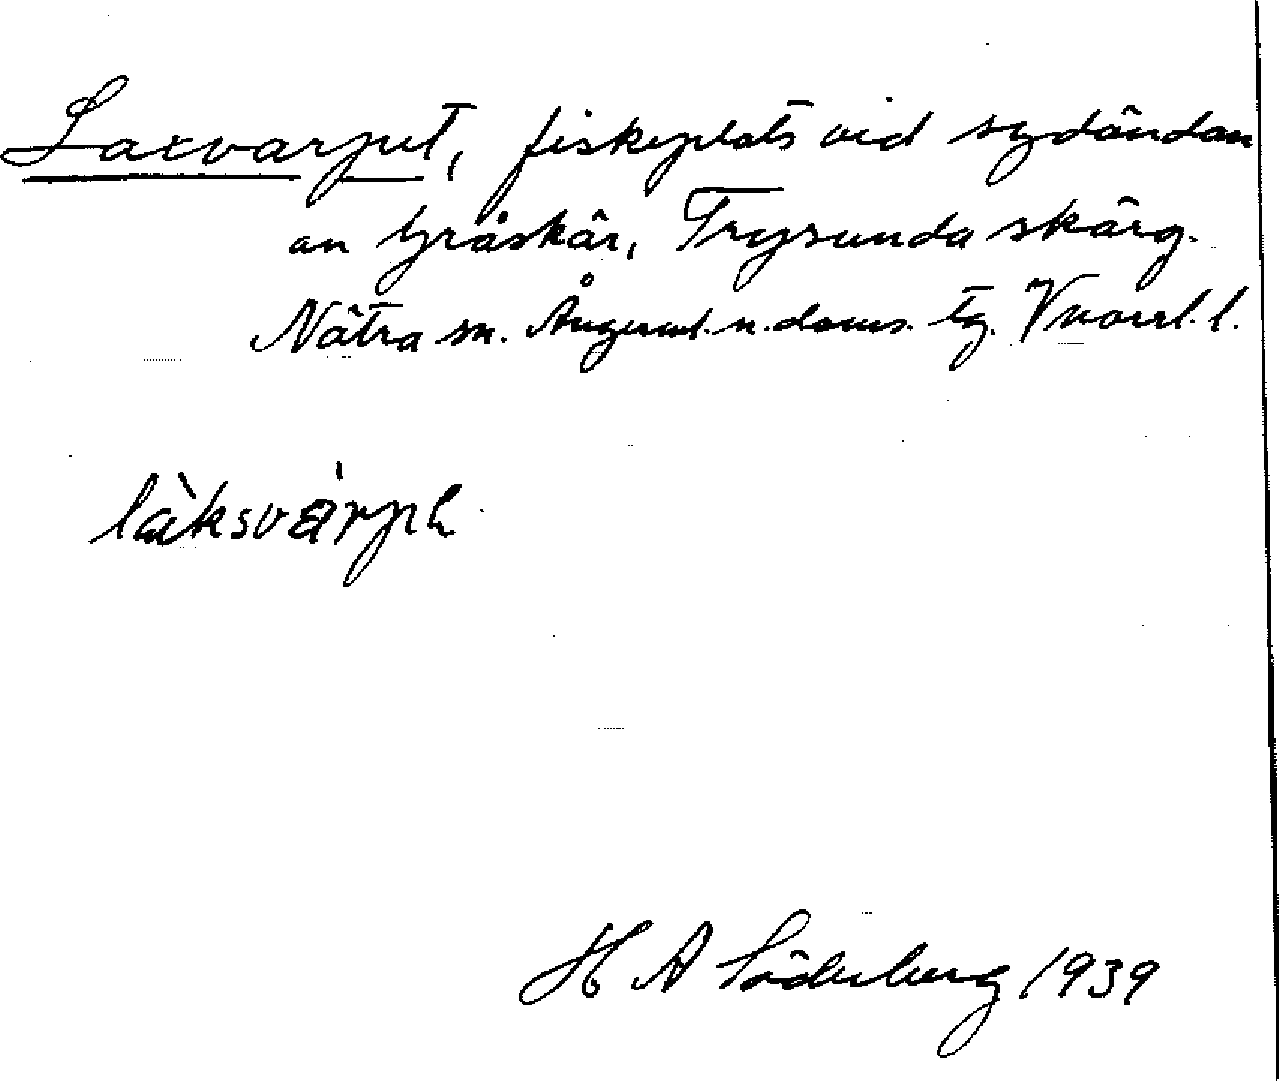 Laxvarput, fiskeplats vid sydändan
av Gråskär, Trysunda skärg.
Nätra sn. Ångerml. n. doms. tg. Vnorrl. l.
làksvàrph
H A Söderberg 1939